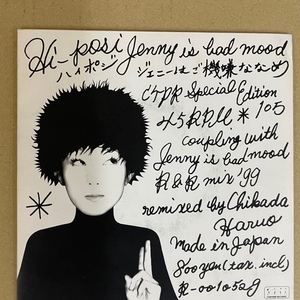 Hi-posi Jenny is bad mood
ハイポジ ジェニーはご機嫌ななめ
Special Edition
45RPM * 105
coupling with
Jenny is bad mood
R&R mix '99
remixed by Chikada
Haruo
made in Japan
800yen (tax, incl)